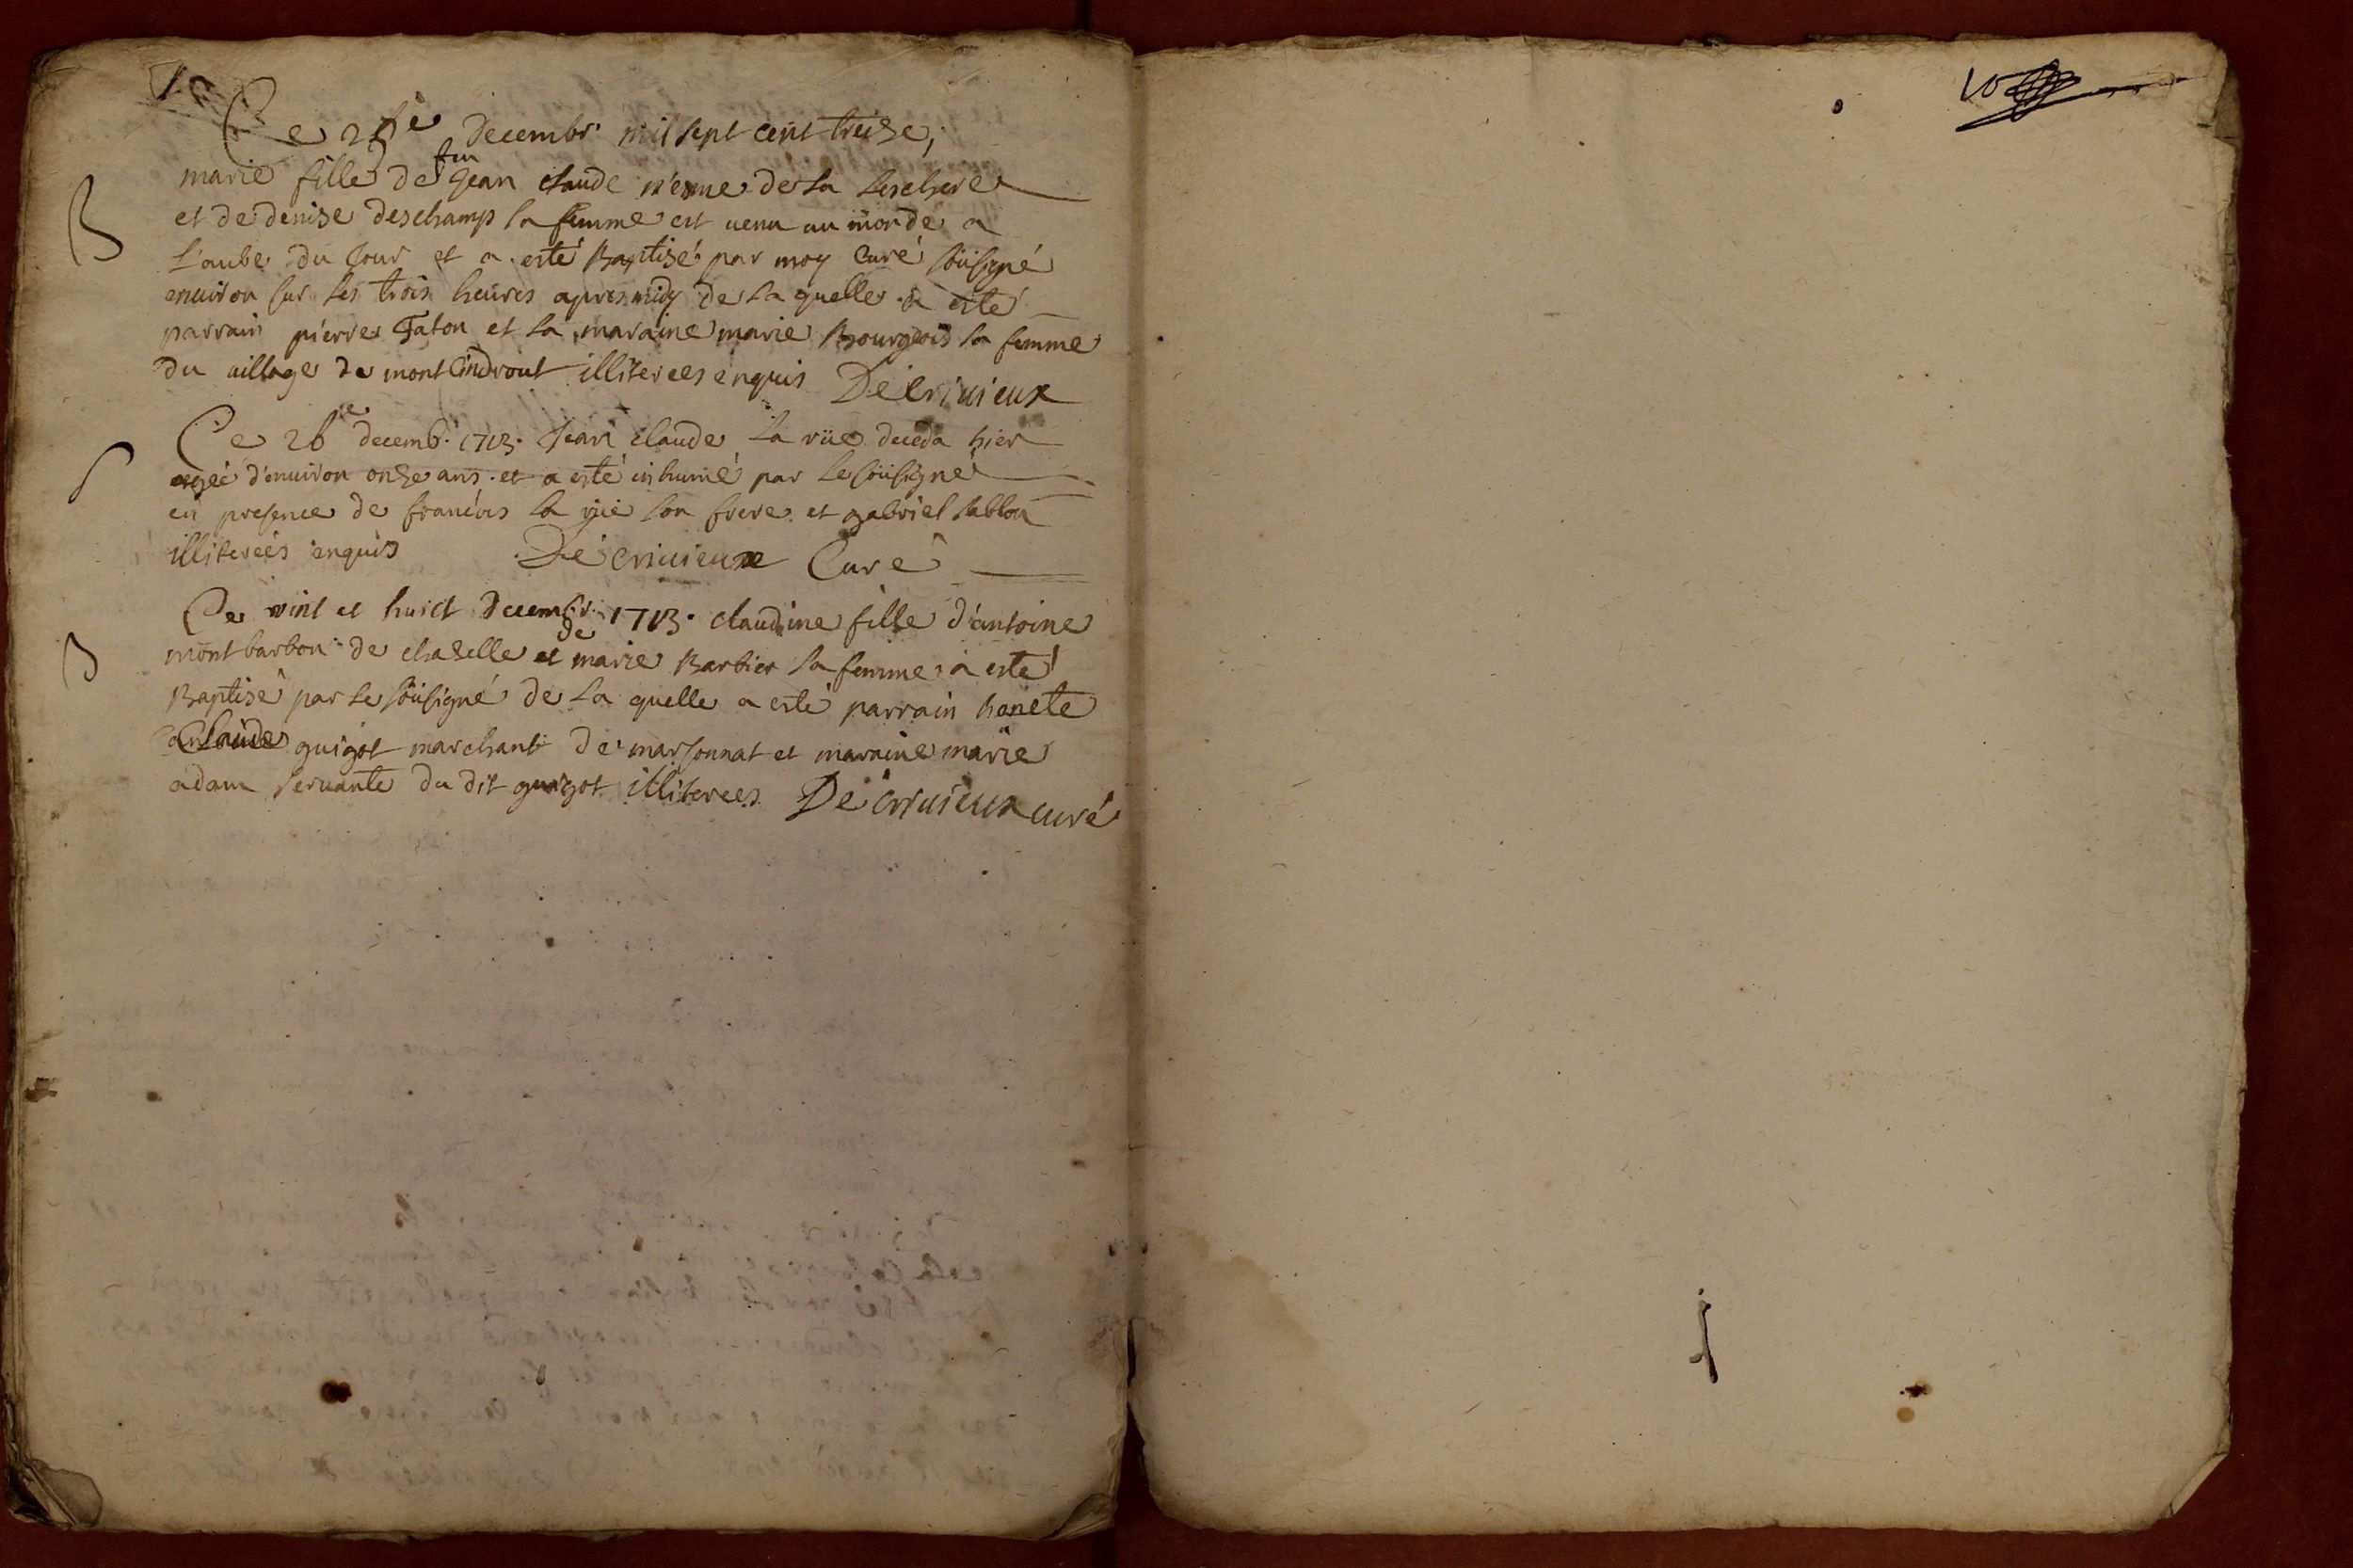 Ce decembr. mil sept cent treize,
marie fille de feu Jean claude de la
et de denise deschamp sa femme est venu au monde a
l'aube du Jour et a esté Baptisé par moy Curé soûsigné
enuiron sur les trois heures apres midy de la quelle a esté
parrain pierre Taton et la maraine marie Bourgeois sa femme
du uillage de illiterees enquis De Criuieux
Ce 26e decemb. 1713. Jean claude La rüe deceda hier
agée d'enuiron onze ans. et a esté inhumé par le soûsigné
en presence de francois la rüe son frere et gabriel sablon
illiterees enquis De Criuieux Curé
Ce vint et huict decembr. 1713. claudine fille d'antoine
montbarbon de chaselle et de marie Barbier sa femme a esté
Baptisé par le soûsigné de la quelle a esté parrain honete
Claude guigot marchant de marsonnat et maraine marie
adam seruante du dit guigot illiterees De Criuieux curé
B
S
B
10